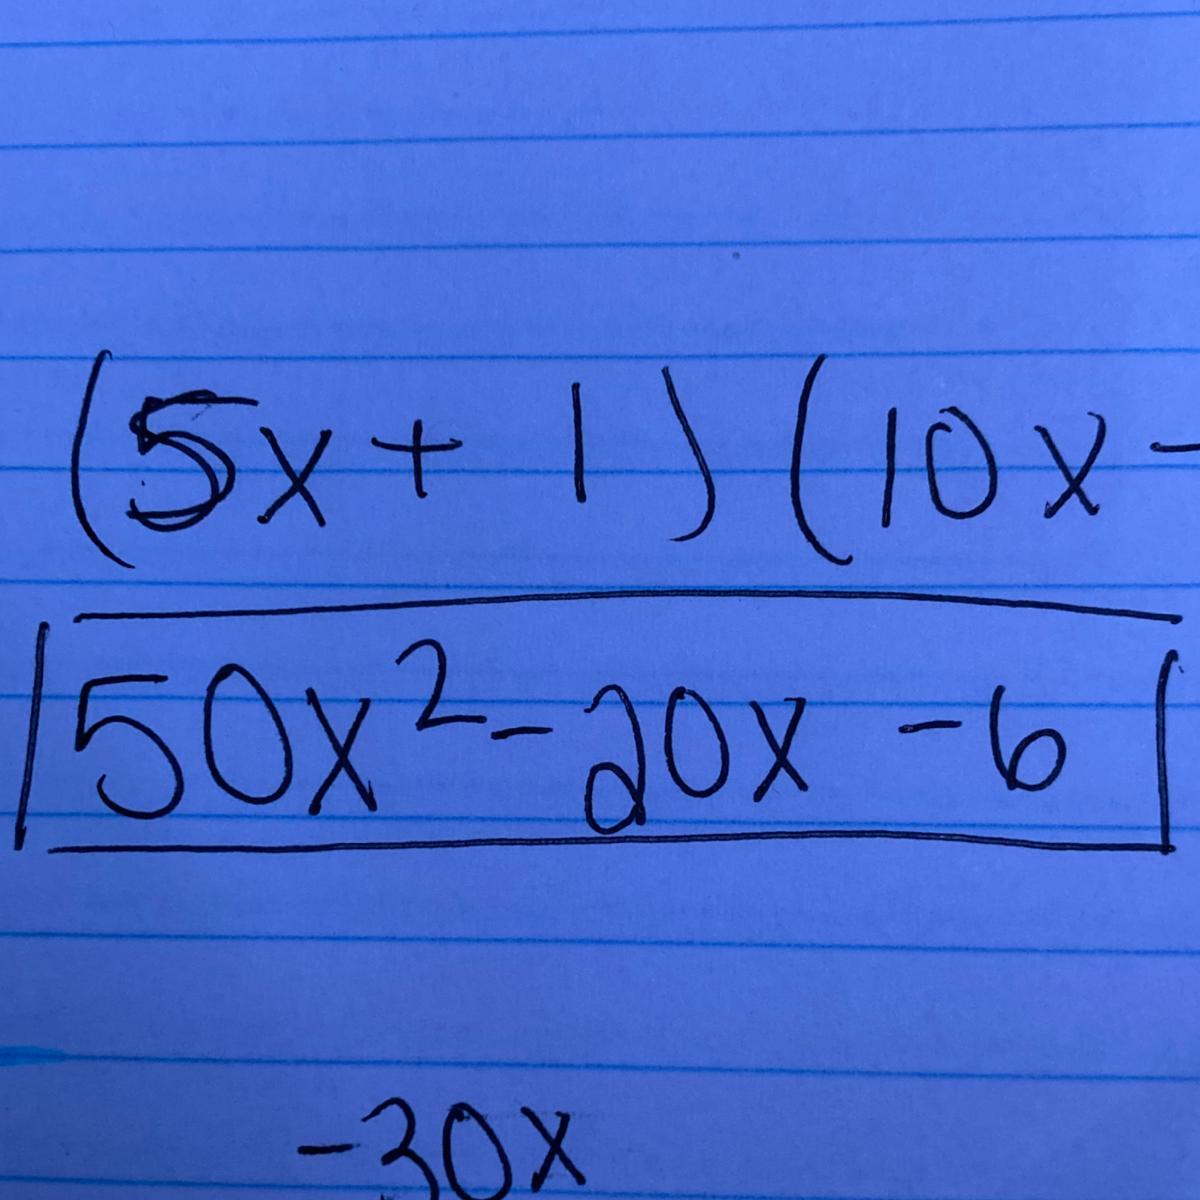 (5x + 1) (10x -
50x² - 20x - 6
-30x